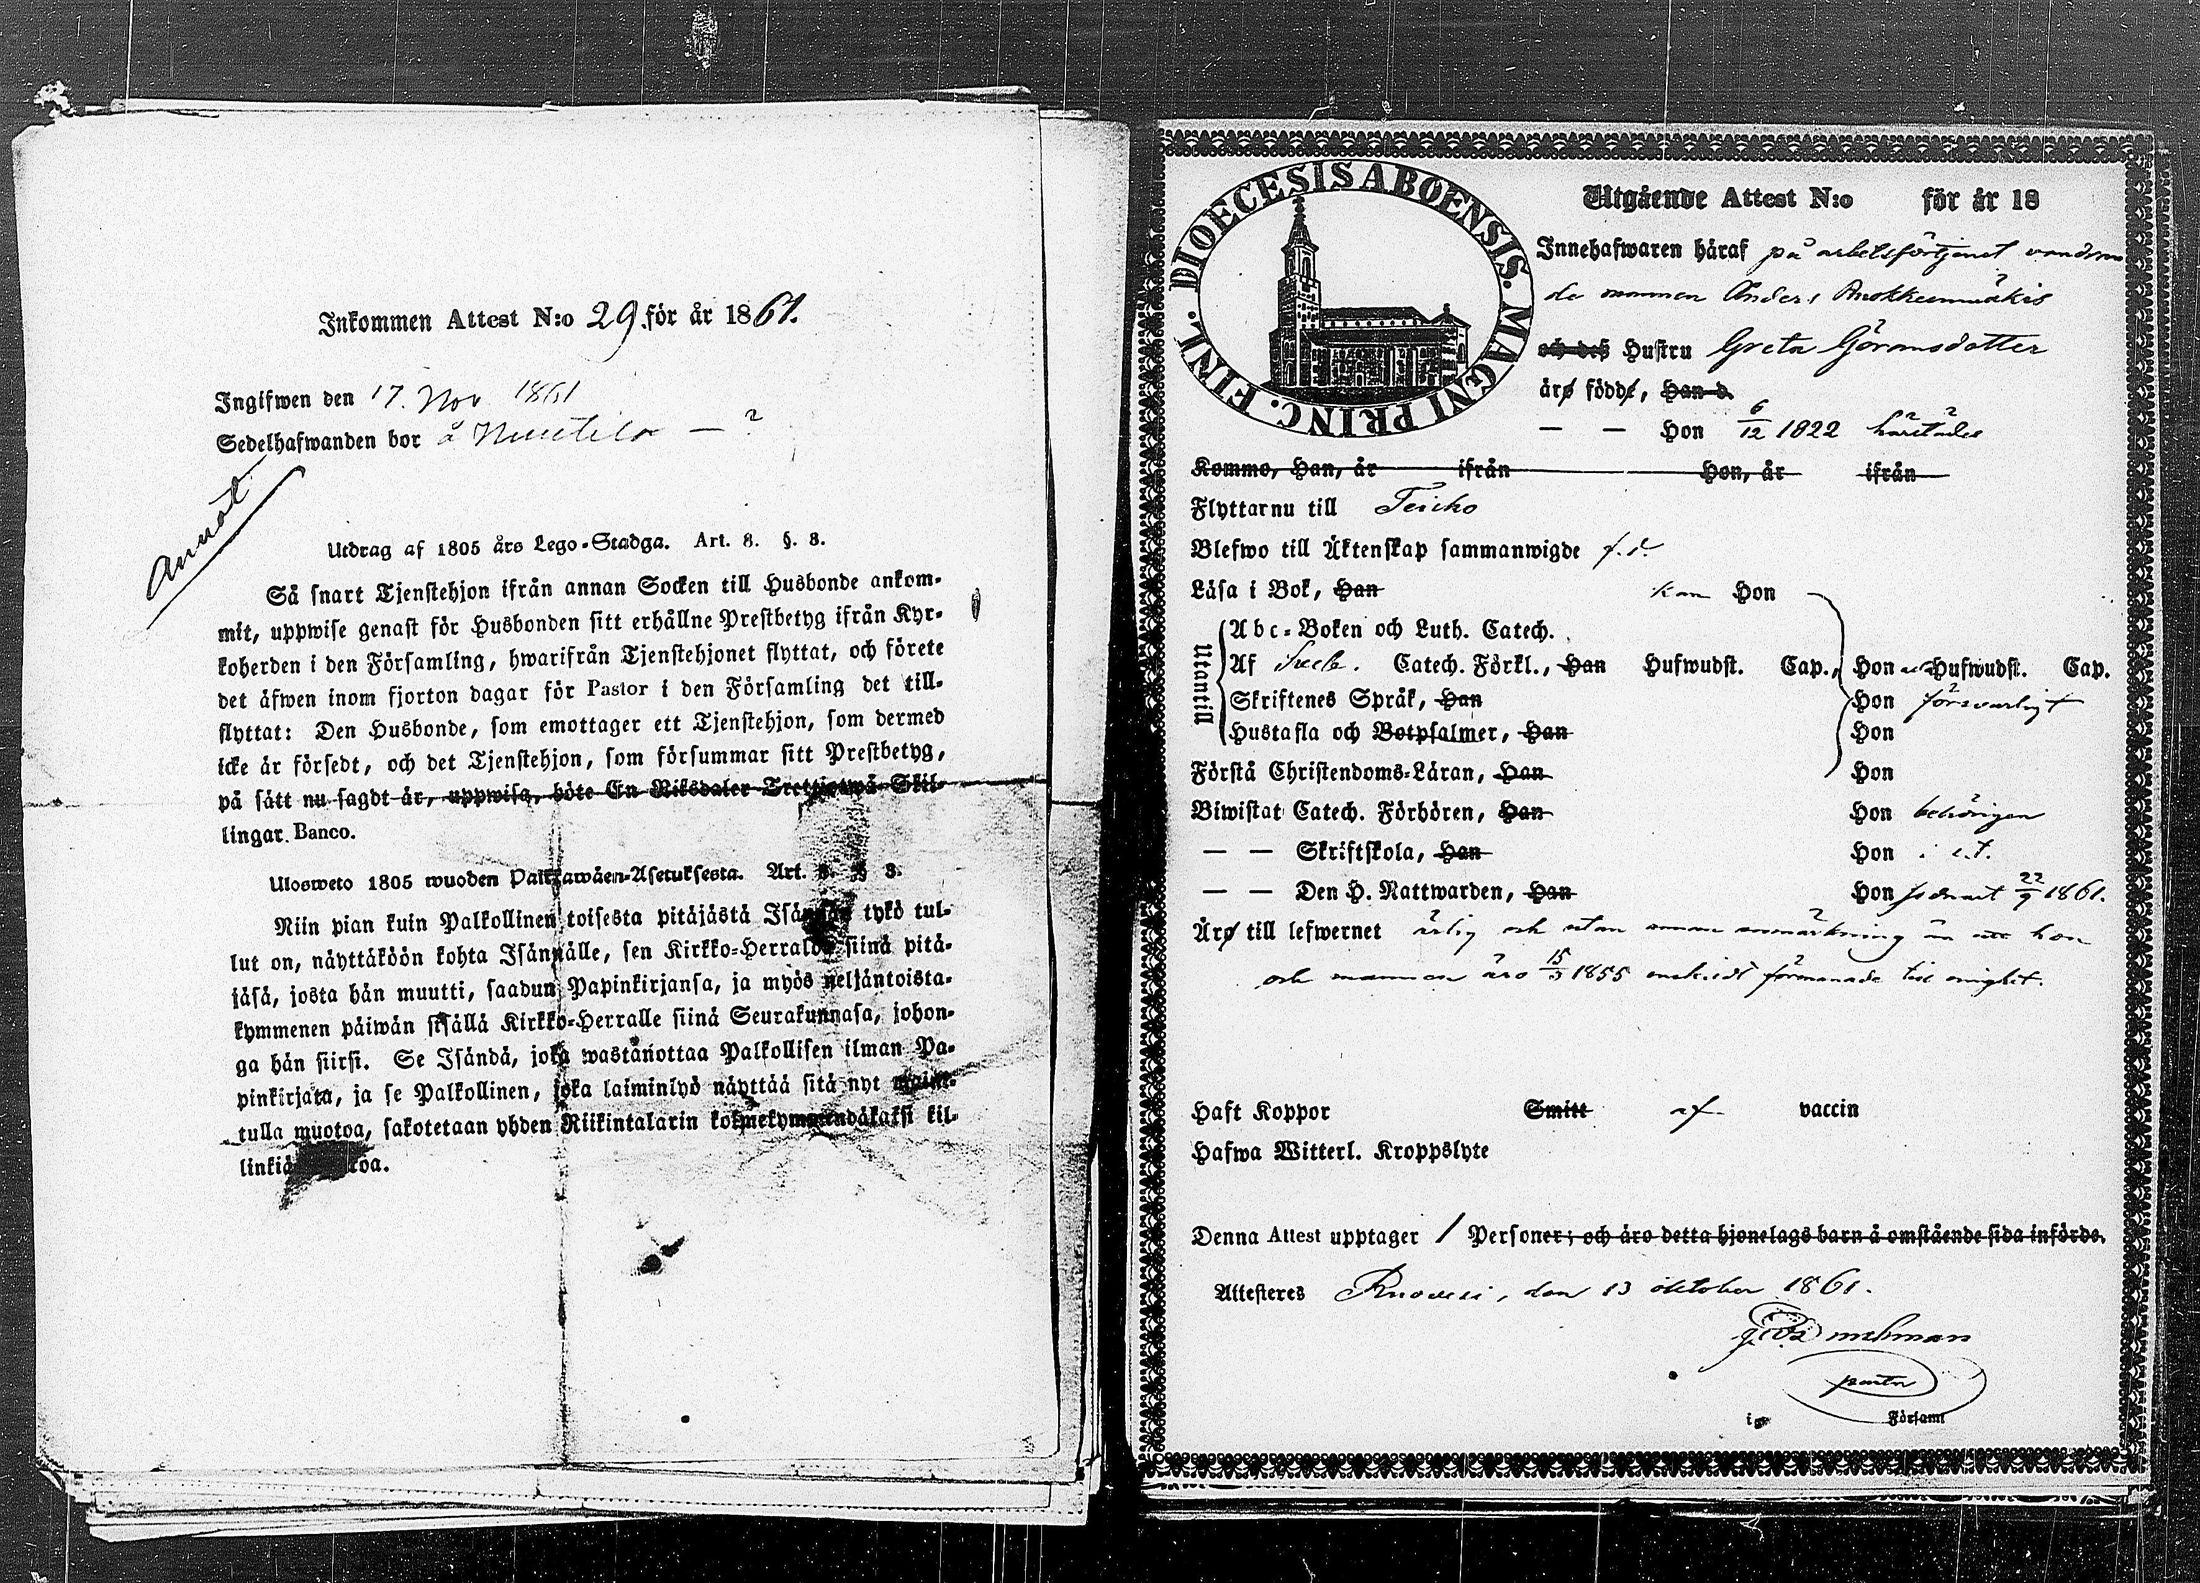 Inkommen Attest N:o 29 för år 1861.
Ingifwen den 17. Nov 1861
Sedelhafwanden bor å — ?
Annot
Utdrag af 1805 års Lego-Stadga. Art. 8. §. 8.
Så snart Tjenstehjon ifrån annan Socken till Husbonde ankom-
mit, uppwise genast för Husbonden sitt erhållne Prestbetyg ifrån Kyr-
koherden i den Församling, hwarifrån Tjenstehjonet flyttat, och förete
det äfwen inom fjorton dagar för Pastor i den Församling det till-
flyttat: Den Husbonde, som emottager ett Tjenstehjon, som dermed
icke är försedt, och det Tjenstehjon, som försummar sitt Prestbetyg,
på sätt nu sagdt är, uppwisa, böte En Riksdaler Trettiotwå Skil-
lingar Banco.
Ulosweto 1805 wuoden Palkkawäen-Asetuksesta. Art. 8. § 8.
Niin pian kuin Palkollinen toisesta pitäjästä Isännän tykö tul-
lut on, näyttäköön kohta Isännälle, sen Kirkko-Herralda siinä pitä-
jäsä, josta hän muutti, saadun Papinkirjansa, ja myös neljäntoista-
kymmenen päiwän sisällä Kirkko-Herralle siinä Seurakunnasa, johon-
ga hän siirsi. Se Isändä, joka wastanottaa Palkollisen ilman Pa-
pinkirjata, ja se Palkollinen, joka laiminlyö näyttää sitä nyt maini-
tulla muotoa, sakotetaan yhden Riikintalarin kolmekymmendäkaksi kil-
DIOECESIS ABOENSIS. MAGNI PRINC. FINL.
Utgående Attest N:o för år 18
Innehafwaren häraf på arbetsförtjenst vandran
de mannen Anders
och deß Hustru Greta Göransdotter
äro födde, Han d.
— — Hon 6/12 1822 härstädes
Kommo, Han, år ifrån Hon, år ifrån
Flyttarnu till Teisko
Blefwo till Äktenskap sammanwigde f.d.
Läsa i Bok, Han kan Hon
Utantill
Abc-Boken och Luth. Catech.
Af Sveb. Catech. Förkl., Han Hufwudst. Cap., Hon Hufwudst. Cap.
Skriftenes Språk, Han Hon försvarligt
Hustafla och Botpsalmer, Han Hon
Förstå Christendoms-Läran, Han Hon
Biwistat Catech. Förhören, Han Hon behörigen
— — Skriftskola, Han Hon
— — Den H. Nattwarden, Han Hon sednast 22/9 1861.
Äro till lefwernet ärlig och utan annan anmärkning än att hon
och mannen äro 15/3 1855 enskildt förmanade till enighet.
Haft Koppor Smitt af vaccin
Hafwa Witterl. Kroppslyte
Denna Attest upptager 1 Personer; och äro detta hjonelags barn å omstående sida införde.
Attesteres Ruovesi, den 13 oktober 1861.
pastor
i Församl